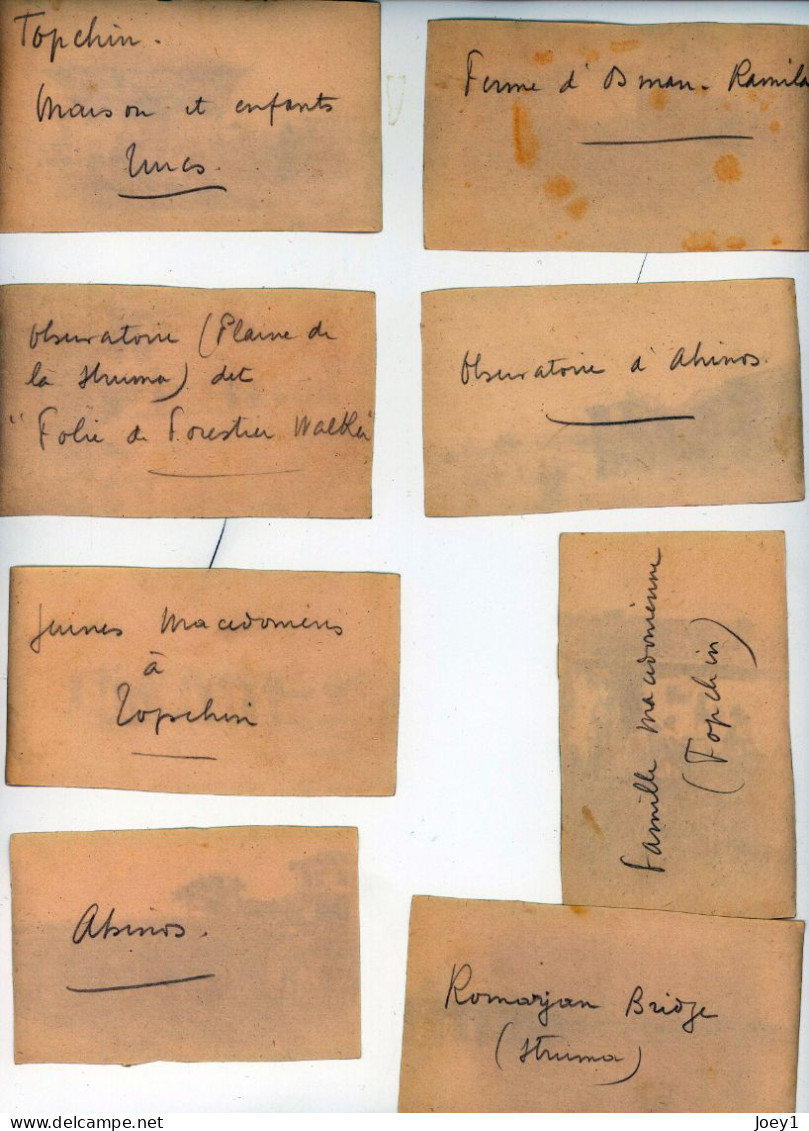 Topchin.
Maison et enfants
Turcs.
Ferme d'Osman-Kamila
Observatoire (Plaine de
la Struma) dit
"Folie de Forestier Walker"
Observatoire d'Ahinos.
Jeunes Macedoniens
à
Topchin
Famille macedonienne
(Topchin)
Ahinos.
Komarjan Bridge
(Struma)
delcampe.net
Joey1